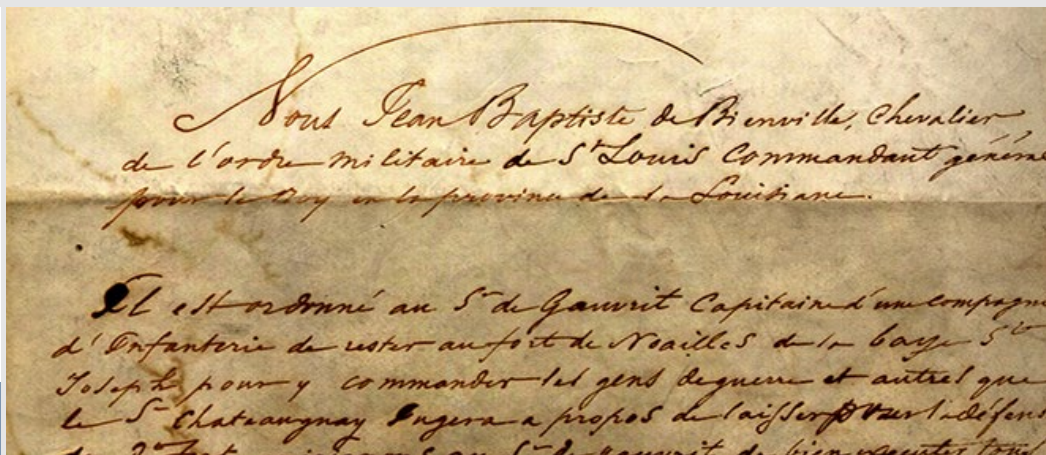 Nous Jean Baptiste de Bienville, Chevalier
de l'ordre militaire de St Louis Commandant généra
pour le Roy en la province de la Louisiane.
Il est ordonné au Sr de Gauvrit Capitaine d'une compagn
d'Infanterie de rester au fort de Noailles de la baye Ste
Joseph pour y commander les gens de guerre et autres que
le Sr Chateaugnay Jugera a propos de laisser pour la défens
au Sr de Gauvrit de bien